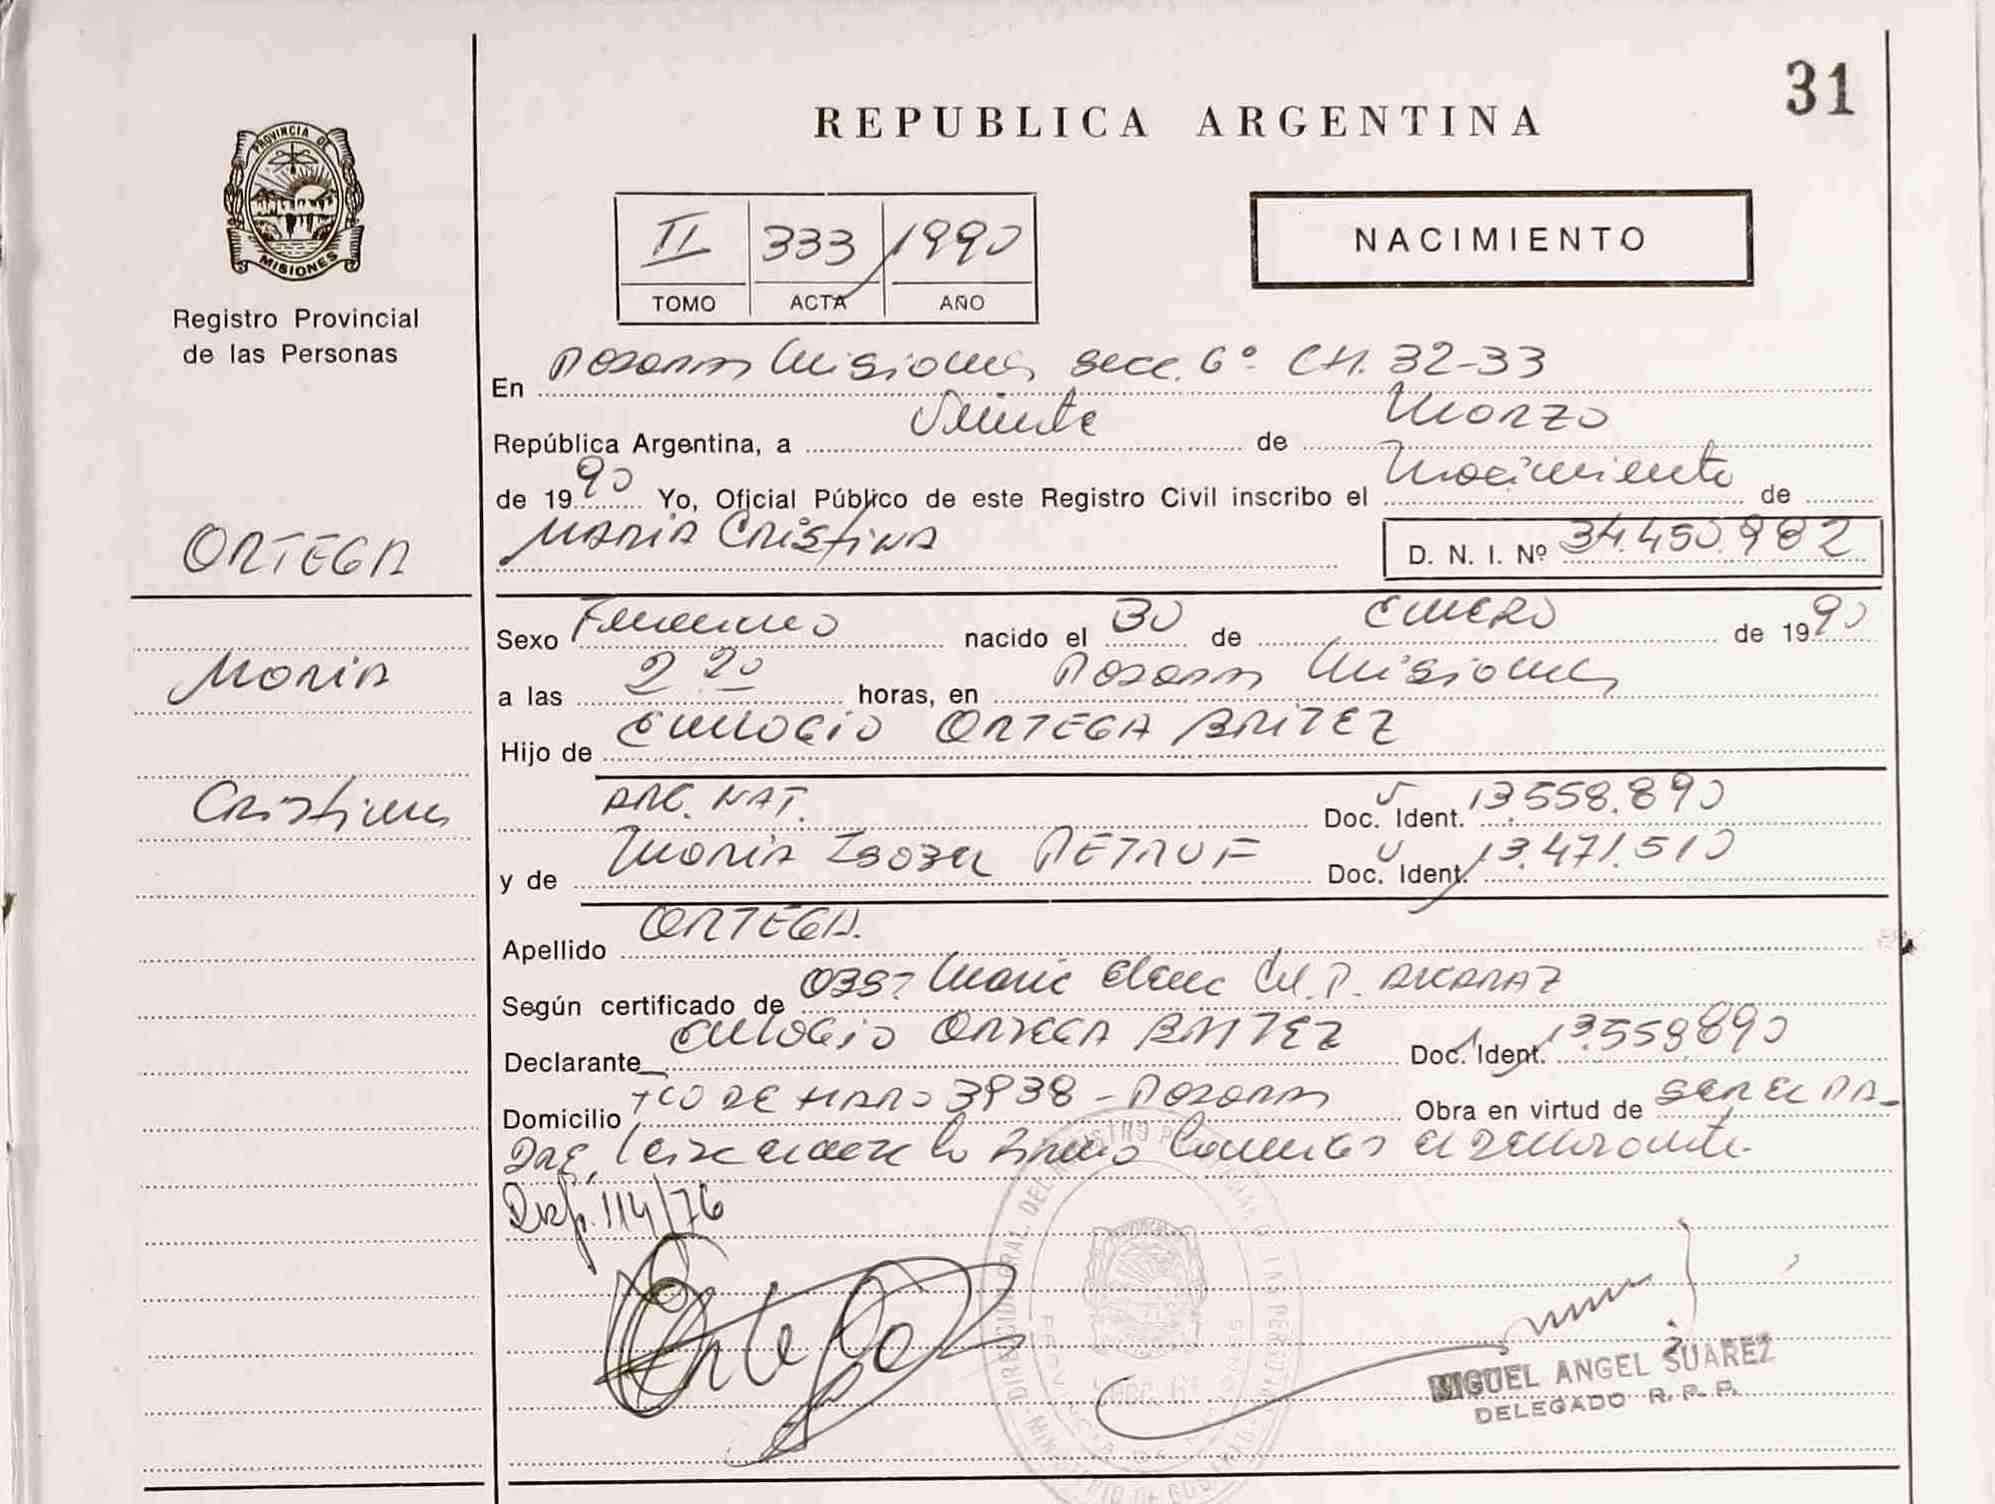 31
REPUBLICA ARGENTINA
PROVINCIA DE
MISIONES
Registro Provincial
de las Personas
II 333 1990
TOMO ACTA AÑO
NACIMIENTO
En Posadas Misiones secc. 6º CH. 32-33
República Argentina, a Veinte de Marzo
de 1990 Yo, Oficial Público de este Registro Civil inscribo el Nacimiento de
ORTEGA
MARIA CRISTINA
D. N. I. Nº 34.450.982
Sexo Femenino nacido el 30 de ENERO de 1990
Maria
a las 2 20 horas, en Posadas Misiones
Hijo de EULOGIO ORTEGA BRITEZ
Cristina
ARG. NAT. Doc. Ident. 13.558.890
y de Maria Isabel PETRUF Doc. Ident. 13.471.510
Apellido ORTEGA.
Según certificado de OBST. Maria Elena del P. ALCARAZ
Declarante EULOGIO ORTEGA BRITEZ Doc. Ident. 13.558.890
Domicilio TCO DE HARO 3938 - Posadas Obra en virtud de SER EL PA-
DRE, Leida el acta la firma el declarante.
Disp. 114/76
Ortega
MIGUEL ANGEL SUAREZ
DELEGADO R. P. P.